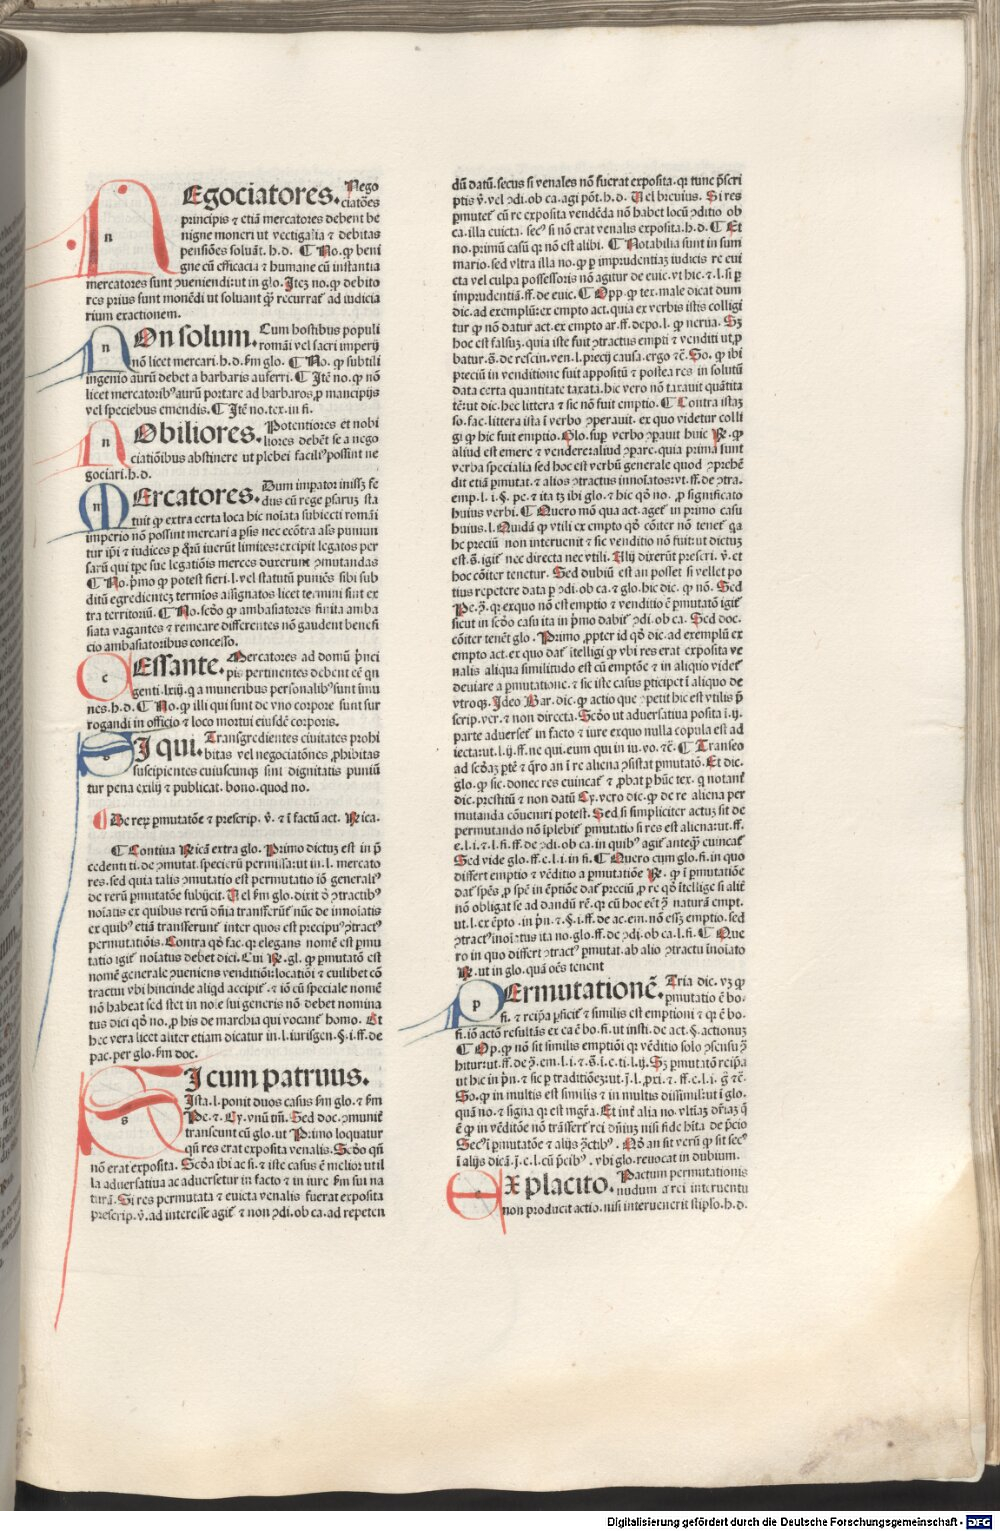 NEgociatores. Nego
ciatões
principis ⁊ etiã mercatores debent be
nigne moneri ut vectigalia ⁊ debitas
pensiões soluãt. h. d. ¶ No. ꝙ beni
gne cũ efficacia ⁊ humane cũ instantia
mercatores sunt ꝯueniendi: ut in glo. Itez no. ꝙ debito
res prius sunt monẽdi ut soluant q̃ recurrat̃ ad iudicia
rium exactionem.
NOn solum. Cum hostibus populi
romãi vel sacri imperij
nõ licet mercari. h. d. ẜm glo. ¶ No. ꝙ subtili
ingenio aurũ debet a barbaris auferri. ¶ Itẽ no. ꝙ nõ
licet mercatoribꝰ aurũ portare ad barbaros, ꝓ mancipijs
vel speciebus emendis. ¶ Itẽ no. tex. in fi.
NObiliores. Potentiores et nobi
liores debẽt se a nego
ciatiõibus abstinere ut plebei faciliꝰ possint ne
gociari. h. d.
MErcatores. Dum impator iniſſʒ fe
dus cũ rege psaruʒ sta
tuit ꝙ extra certa loca hic noĩata subiecti romãi
imperio nõ possint mercari a psis nec ecõtra als puniun
tur ip̃i ⁊ iudices p q̃rũ iuerũt limites: excipit legatos per
sarũ qui tp̃e sue legatiõis merces duxerunt ꝯmutandas
¶ No. p̃mo ꝙ potest fieri. l. vel statutũ puniẽs sibi sub
ditũ egredienteʒ termĩos assignatos licet termini sint ex
tra territoriũ. ¶ No. scďo ꝙ ambasiatores finita amba
siata vagantes ⁊ remeare differentes nõ gaudent benefi
cio ambasiatoribus concesso.
CEssante. Mercatores ad domũ p̃nci
pis pertinentes debent eẽ qn
genti. lxiij. q a muneribus personalibꝰ sunt ĩmu
nes. h. d. ¶ No. ꝙ illi qui sunt de vno corpore sunt sur
rogandi in officio ⁊ loco mortui eiusdẽ corporis.
SI qui. Transgredientes ciuitates prohi
bitas vel negociatõnes ꝓhibitas
suscipientes cuiuscunqꝫ sint dignitatis puniũ
tur pena exilij ⁊ publicat. bono. quod no.
¶ De reꝝ pmutatõe ⁊ prescrip. v̄. ⁊ ĩ factũ act. Rica.
¶ Continua Ricã extra glo. Primo dictuʒ est in p̃
cedenti ti. de ꝯmutat. specierũ permissa: ut in. l. mercato
res. sed quia talis ꝯmutatio est permutatio iõ generalꝰ
de rerũ pmutatõe subijcit. Uel ẜm glo. dixit ő ꝯtractibꝰ
noĩatis ex quibus rerũ dñia transferũt̃ nũc de innoĩatis
ex quibꝰ etiã transferunt̃ inter quos est precipuꝰ ꝯtractꝰ
permutatiõis. Contra qďo fac. qꝛ elegans nomẽ est pmu
tatio igit̃ noĩatus debet dici. Cui R. gl. ꝙ pmutatõ est
nomẽ generale ꝯueniens venditiõi: locatiõi ⁊ cuilibet cõ
tractui vbi hincinde aliqd accipit̃. ⁊ iõ cũ speciale nomẽ
nõ habeat sed stet in noĩe sui generis nõ debet nomina
tus dici qďo no. ꝓ his de marchia qui vocant̃ homo. Et
hec vera licet aliter etiam dicatur in. l. iurisgen. §. i. ff. de
pac. per glo. ẜm doc.
SI cum patruus.
Ista. l. ponit duos casus ẜm glo. ⁊ ẜm
Pe. ⁊ Cy. vnũ tm̃. Sed doc. ꝯmunit̃
transeunt cũ glo. ut Primo loquatur
qñ res erat exposita venalis. Scďo qñ
nõ erat exposita. Scďa ibi ac si. ⁊ iste casus ẽ melior ut il
la aduersatiua ac aduersetur in facto ⁊ in iure ẜm sui na
turã. Si res permutata ⁊ euicta venalis fuerat exposita
prescrip. v̄. ad interesse agit̃ ⁊ non ꝯdi. ob ca. ad repeten
dũ datũ. secus si venales nõ fuerat exposita. qꝛ tunc p̃scri
ptis v̄. vel ꝯdi. ob ca. agi põt. h. d. Uel breuius. Si res
pmutet̃ cũ re exposita vendẽda nõ habet locũ ꝯditio ob
ca. illa euicta. secꝰ si nõ erat venalis exposita. h. d. ¶ Et
no. primũ casũ qꝛ nõ est alibi. ¶ Notabilia sunt in sum
mario. sed vltra illa no. ꝙ p imprudentiaʒ iudicis re eui
cta vel culpa possessoris nõ agitur de euic. vt hic. ⁊. l. si p
imprudentiã. ff. de euic. ¶ Opp. ꝙ tex. male dicat dum
dic. ad exemplũ: ex empto act. quia ex verbis istis colligi
tur ꝙ nõ datur act. ex empto ar. ff. depo. l. ꝙ nerua. Sʒ
hoc est falsuʒ. quia iste fuit ꝯtractus empti ⁊ venditi ut, p
batur. s̃. de rescin. ven. l. precij causa. ergo ⁊c̃. So. ꝙ ibi
preciũ in venditione fuit appositũ ⁊ postea res in solutũ
data certa quantitate taxata. hic vero nõ taxauit quãtita
tẽ: ut dic. hec littera ⁊ sic nõ fuit emptio. ¶ Contra istaʒ
so. fac. littera ista ĩ verbo ꝯperauit. ex quo videtur colli
gi ꝙ hic fuit emptio. Glo. sup verbo ꝯpauit huic R. ꝙ
aliud est emere ⁊ vendere: aliud ꝯpare. quia prima sunt
verba specialia sed hoc est verbũ generale quod ꝯprehẽ
dit etiã pmutat̃. ⁊ alios ꝯtractus innoĩatos: vt. ff. de ꝯtra.
emp. l. i. §. pe. ⁊ ita tʒ ibi glo. ⁊ hic qďo no. ꝓ significato
huius verbi. ¶ Quero mõ qua act. aget̃ in primo casu
huius. l. Quidã ꝙ vtili ex empto qďo cõiter nõ tenet̃ qa
hc preciũ non interuenit ⁊ sic venditio nõ fuit: ut dictuʒ
est. s̃. igit̃ nec directa nec vtili. Alij dixerũt prescri. v̄. et
hoc cõiter tenetur. Sed dubiũ est an posset si vellet po
tius repetere data p ꝯdi. ob ca. ⁊ glo. hic dic. ꝙ nõ. Sed
Pe. ꝯ̃. qꝛ exquo nõ est emptio ⁊ venditio ẽ pmutatõ igit̃
sicut in scďo casu ita in p̃mo dabit̃ ꝯdi. ob ca. Sed doc.
cõiter tenẽt glo. Primo, ꝓpter id qďo dic. ad exemplũ ex
empto act. ex quo dat̃ ĩtelligi ꝙ vbi res erat exposita ve
nalis aliqua similitudo est cũ emptõe ⁊ in aliquo videt̃
deuiare a pmutatione. ⁊ sic iste casus pticipet ĩ aliquo de
vtroqꝫ. Ideo Bar. dic. ꝙ actio que ꝯpetit hic est vtilis p̃
scrip. ver. ⁊ non directa. Scďo ut aduersatiua posita ĩ. ij.
parte aduerset̃ in facto ⁊ iure exquo nulla copula est ad
iecta: ut. l. ij. ff. ne qui. eum qui in iu. vo. ⁊c̃. ¶ Transeo
ad scďaʒ ptẽ ⁊ q̃ro an ĩ re aliena ꝯsistat pmutatõ. Et dic.
glo. ꝙ sic. donec res euincat̃ ⁊ ꝓbat̃ p hũc tex. q notant̃
dic. prestitũ ⁊ non datũ Cy. vero dic. ꝙ de re aliena per
mutanda cõueniri potest. Sed si simpliciter actuʒ sit de
permutando nõ ĩplebit̃ pmutatio si res est aliena: ut. ff.
e. l. i. ⁊. l. fi. ff. de ꝯdi. ob ca. in quibꝰ agit̃ anteq̃ euincat̃
Sed vide glo. ff. e. l. i. in fi. ¶ Quero cum glo. fi. in quo
differt emptio ⁊ vẽditio a pmutatiõe R. ꝙ ĩ pmutatiõe
dat̃ spẽs, ꝓ spẽ in ẽptiõe dat̃ preciũ, ꝓ re qďo ĩtellige si alit̃
nõ obligat se ad dandũ rẽ. qꝛ cũ hoc eẽt ꝯ̃ naturã empt.
ut. l. ex ẽpto. in p̃n. ⁊. §. i. ff. de ac. em. nõ essʒ emptio. sed
ꝯtractꝰ ĩnoĩatus ita no. glo. ff. de ꝯdi. ob ca. l. fi. ¶ Que
ro in quo differt ꝯtractꝰ pmutat. ab alio ꝯtractu ĩnoĩato
R. ut in glo. quã oẽs tenent
PErmutationẽ. Tria dic. vʒ ꝙ
pmutatio ẽ bo.
fi. ⁊ reip̃a pficit̃ ⁊ similis est emptioni ⁊ qꝛ ẽ bo.
fi. iõ actõ resultãs ex ea ẽ bo. fi. ut insti. de act. §. actionuʒ
¶ Op. ꝙ nõ sit similis emptiõi qꝛ vẽditio solo ꝯsensu ꝯ̃
hitur: ut. ff. de ꝯ̃. em. l. i. ⁊. s̃. l. e. ti. l. ij. Sʒ pmutatõ reip̃a
ut hic in p̃n. ⁊ sic p traditiõeʒ: ut. j̃. l. pxi. ⁊. ff. e. l. i. g̃ ⁊c̃.
So. ꝙ in multis est similis ⁊ in multis dissimil: ut ĩ glo.
quã no. ⁊ signa qꝛ est mg̃ra. Et int̃ alia no. vltĩaʒ dr̃iaʒ q̃
ẽ ꝙ in vẽditõe nõ trãsfert̃ rei dñiuʒ nisi fide hita de p̃cio
Secꝰ ĩ pmutatõe ⁊ alijs ꝯ̃ctibꝰ. No. an sit verũ ꝙ sit secꝰ
ĩ alijs dicã. j̃. e. l. cũ p̃cibꝰ. vbi glo. reuocat in dubium.
EX placito. Pactum permutationis
nudum a rei interuentu
non producit actio. nisi interuenerit stipso. h. d.
Digitalisierung gefördert durch die Deutsche Forschungsgemeinschaft - DFG